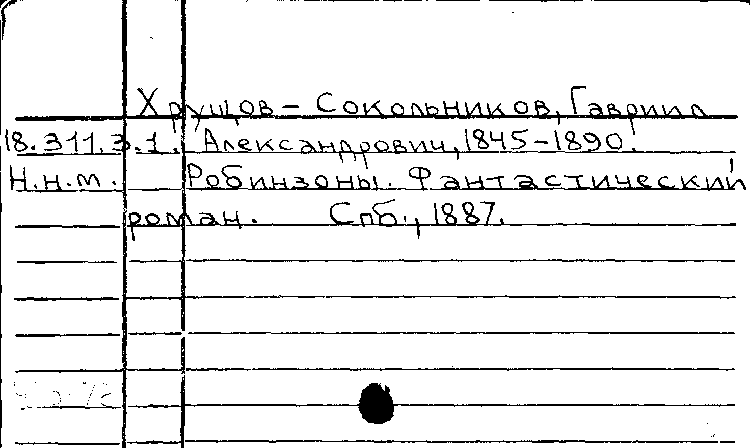 Хрущов - Сокольников, Гавриил
18.311.3.1. Александрович, 1845-1890.
Н.н.м. Робинзоны. Фантастический
роман. Спб., 1887.